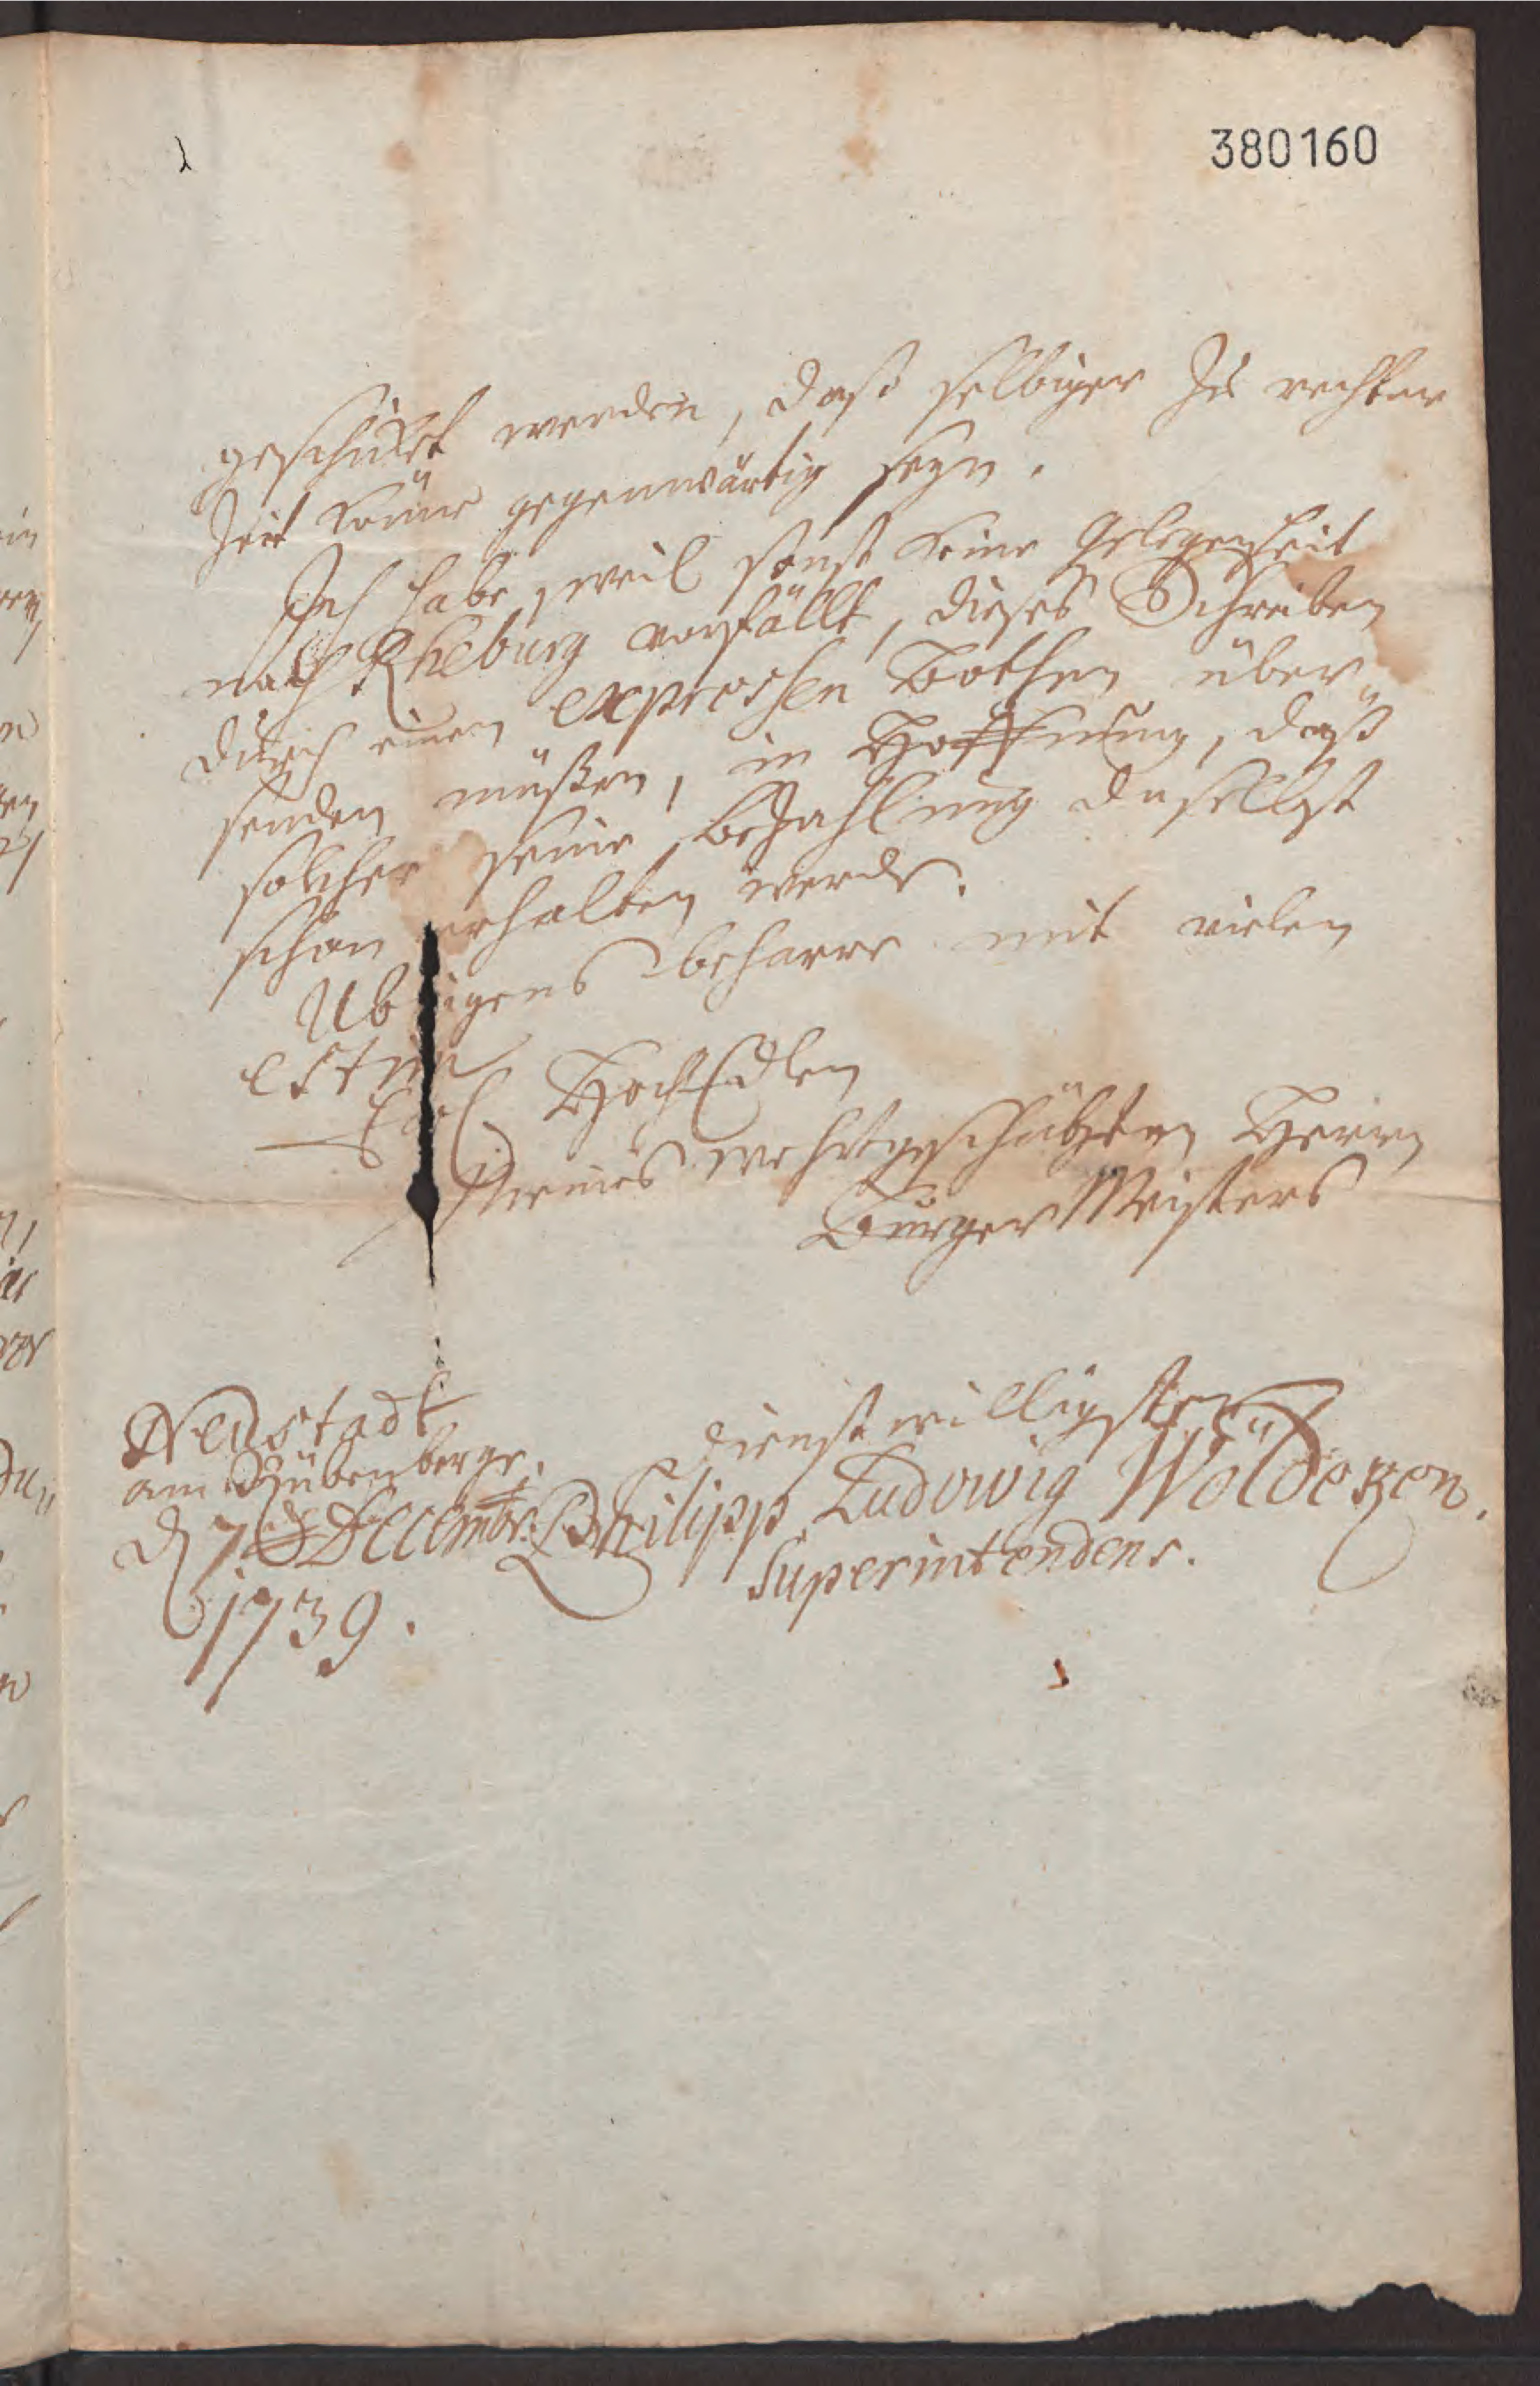 380160
geschickt werden, daß selbiger zu rechter
Zeit könne gegenwärtig seyn.
Ich habe, weil sonst keine Gelegenheit
nach Rheburg vorfällt, dieses Schreiben
durch einen expressen Bothen über„
senden müßen, in Hoffnung, daß
solcher seine Bezahlung daselbst
schon erhalten werde.
Ubrigens beharre mit vielen
estim
Ew HochEdlen
Meines wehrtgeschäzten Herrn
BürgerMeisters
Neustadt
am Rübenberge.
d 7 Decembr.
1739.
dienstwilligster
Philipp Ludowig Wöldeken.
Superintendens.